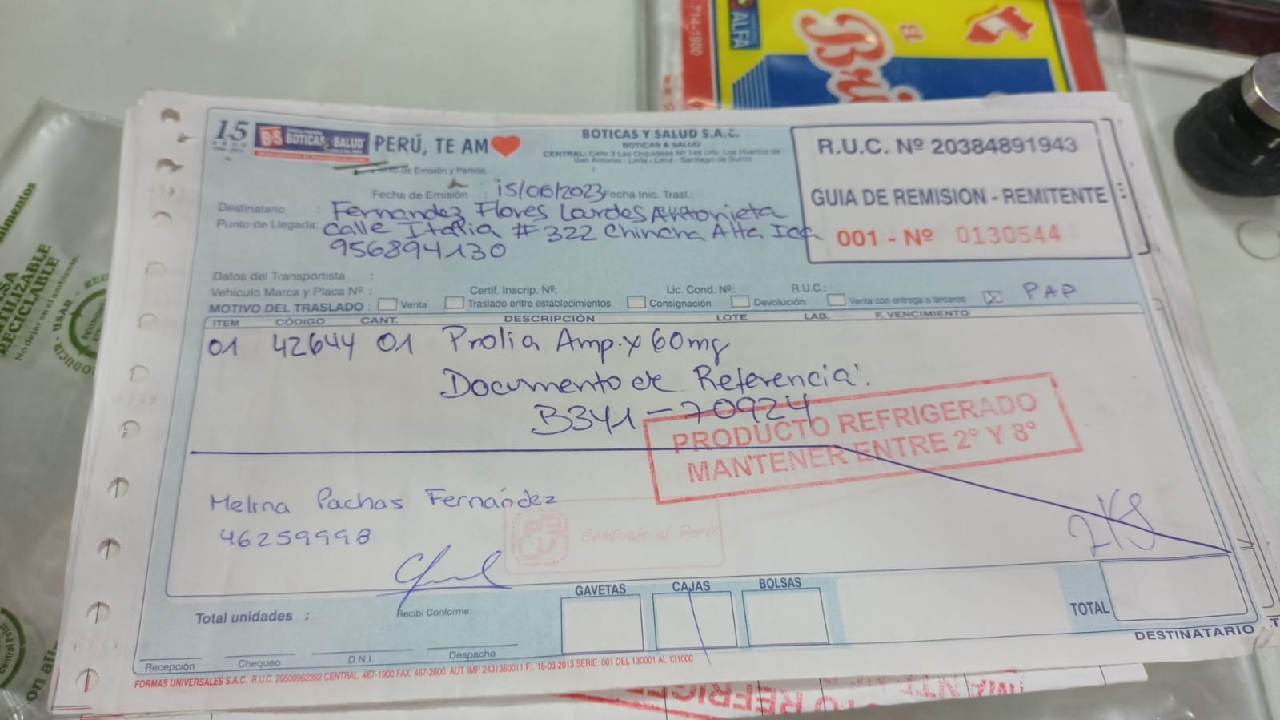 714-1900
ALFA
Bri
alimentos
RECICLABLE
15
BS BOTICAS & SALUD
PERÚ, TE AM
BOTICAS Y SALUD S.A.C.
BOTICAS & SALUD
Punto de Emisión y Partida
Fecha de Emisión 15/06/2023 Fecha Inic. Trasl.
Destinatario : Fernandez Flores Lourdes Antonieta
Punto de Llegada: Calle Italia # 322 Chincha Alta Ica
956894130
R.U.C. Nº 20384891943
GUIA DE REMISION - REMITENTE
001 - Nº 0130544
Datos del Transportista :
Vehículo Marca y Placa Nº : Certif. Inscrip. Nº: Lic. Cond. Nº: R.U.C.:
MOTIVO DEL TRASLADO : Venta Traslado entre establecimientos Consignación Devolución Venta con entrega a terceros X PAP
ITEM CÓDIGO CANT. DESCRIPCIÓN LOTE LAB. F. VENCIMIENTO
01 42644 01 Prolia Amp. x 60mg
Documento de Referencia:
B341-70924
PRODUCTO REFRIGERADO
MANTENER ENTRE 2° Y 8°
Melina Pachas Fernández
46259998
Cómprale al Perú
Total unidades :
Recibí Conforme:
GAVETAS CAJAS BOLSAS
TOTAL
Recepción Chequeo D.N.I. Despacho
DESTINATARIO
FORMAS UNIVERSALES S.A.C. R.U.C. 20509962392 CENTRAL: 467-1900 FAX: 467-2600 AUT. IMP. 2431360011 F.: 16-03-2013 SERIE: 001 DEL 130001 AL 131000